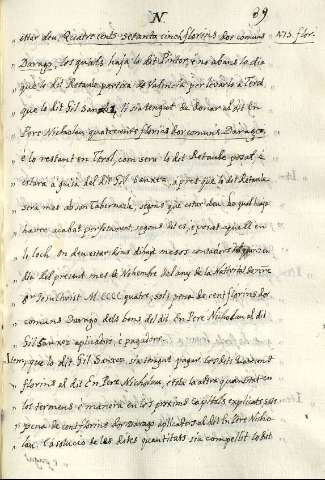 N. 89
estar deu, Quatrecents setanta cinch florins Dor comuns 475. flor.
Darago, los quals haja lo dit Pintor, e no abans lo dia
que lo dit Retaule partira de Valencia per levarlo a Terol
que lo dit Gil Sanxez, li sia tengut de donar al dit En
Pere Nicholau quatrecents florins dor comuns Darago,
e lo restant en Terol, com sera lo dit Retaule posat, e
estara a guisa del dit Gil Sanxez, apres que lo dit Retaule
sera mes ab son Tabernacle, segons que estar deu, lo qual haja
haver acabat perfetament, segons dit es, e posat aquell en
lo loch. On deu estar dins mesos contadors
del present mes de Nohembre del any de la Nativitat de nre
Sr. Jesuchrist M. CCCC quatre, sots pena de cent florins dor
comuns Darago dels bens del dit En Pere Nicholau al dit
Gil Sanxez aplicadors, e pagadors.
Item, que lo dit Gil Sanxez sia tengut pagar los dits
florins al dit En Pere Nicholau, e tota la altra quantitat en
los termens e manera en los proxims Capitols explicats sots
pena de cent florins dor Darago aplicadors al dit En Pere Nicho-
lau. E a solucio de les dites quantitats sia compellit lo dit